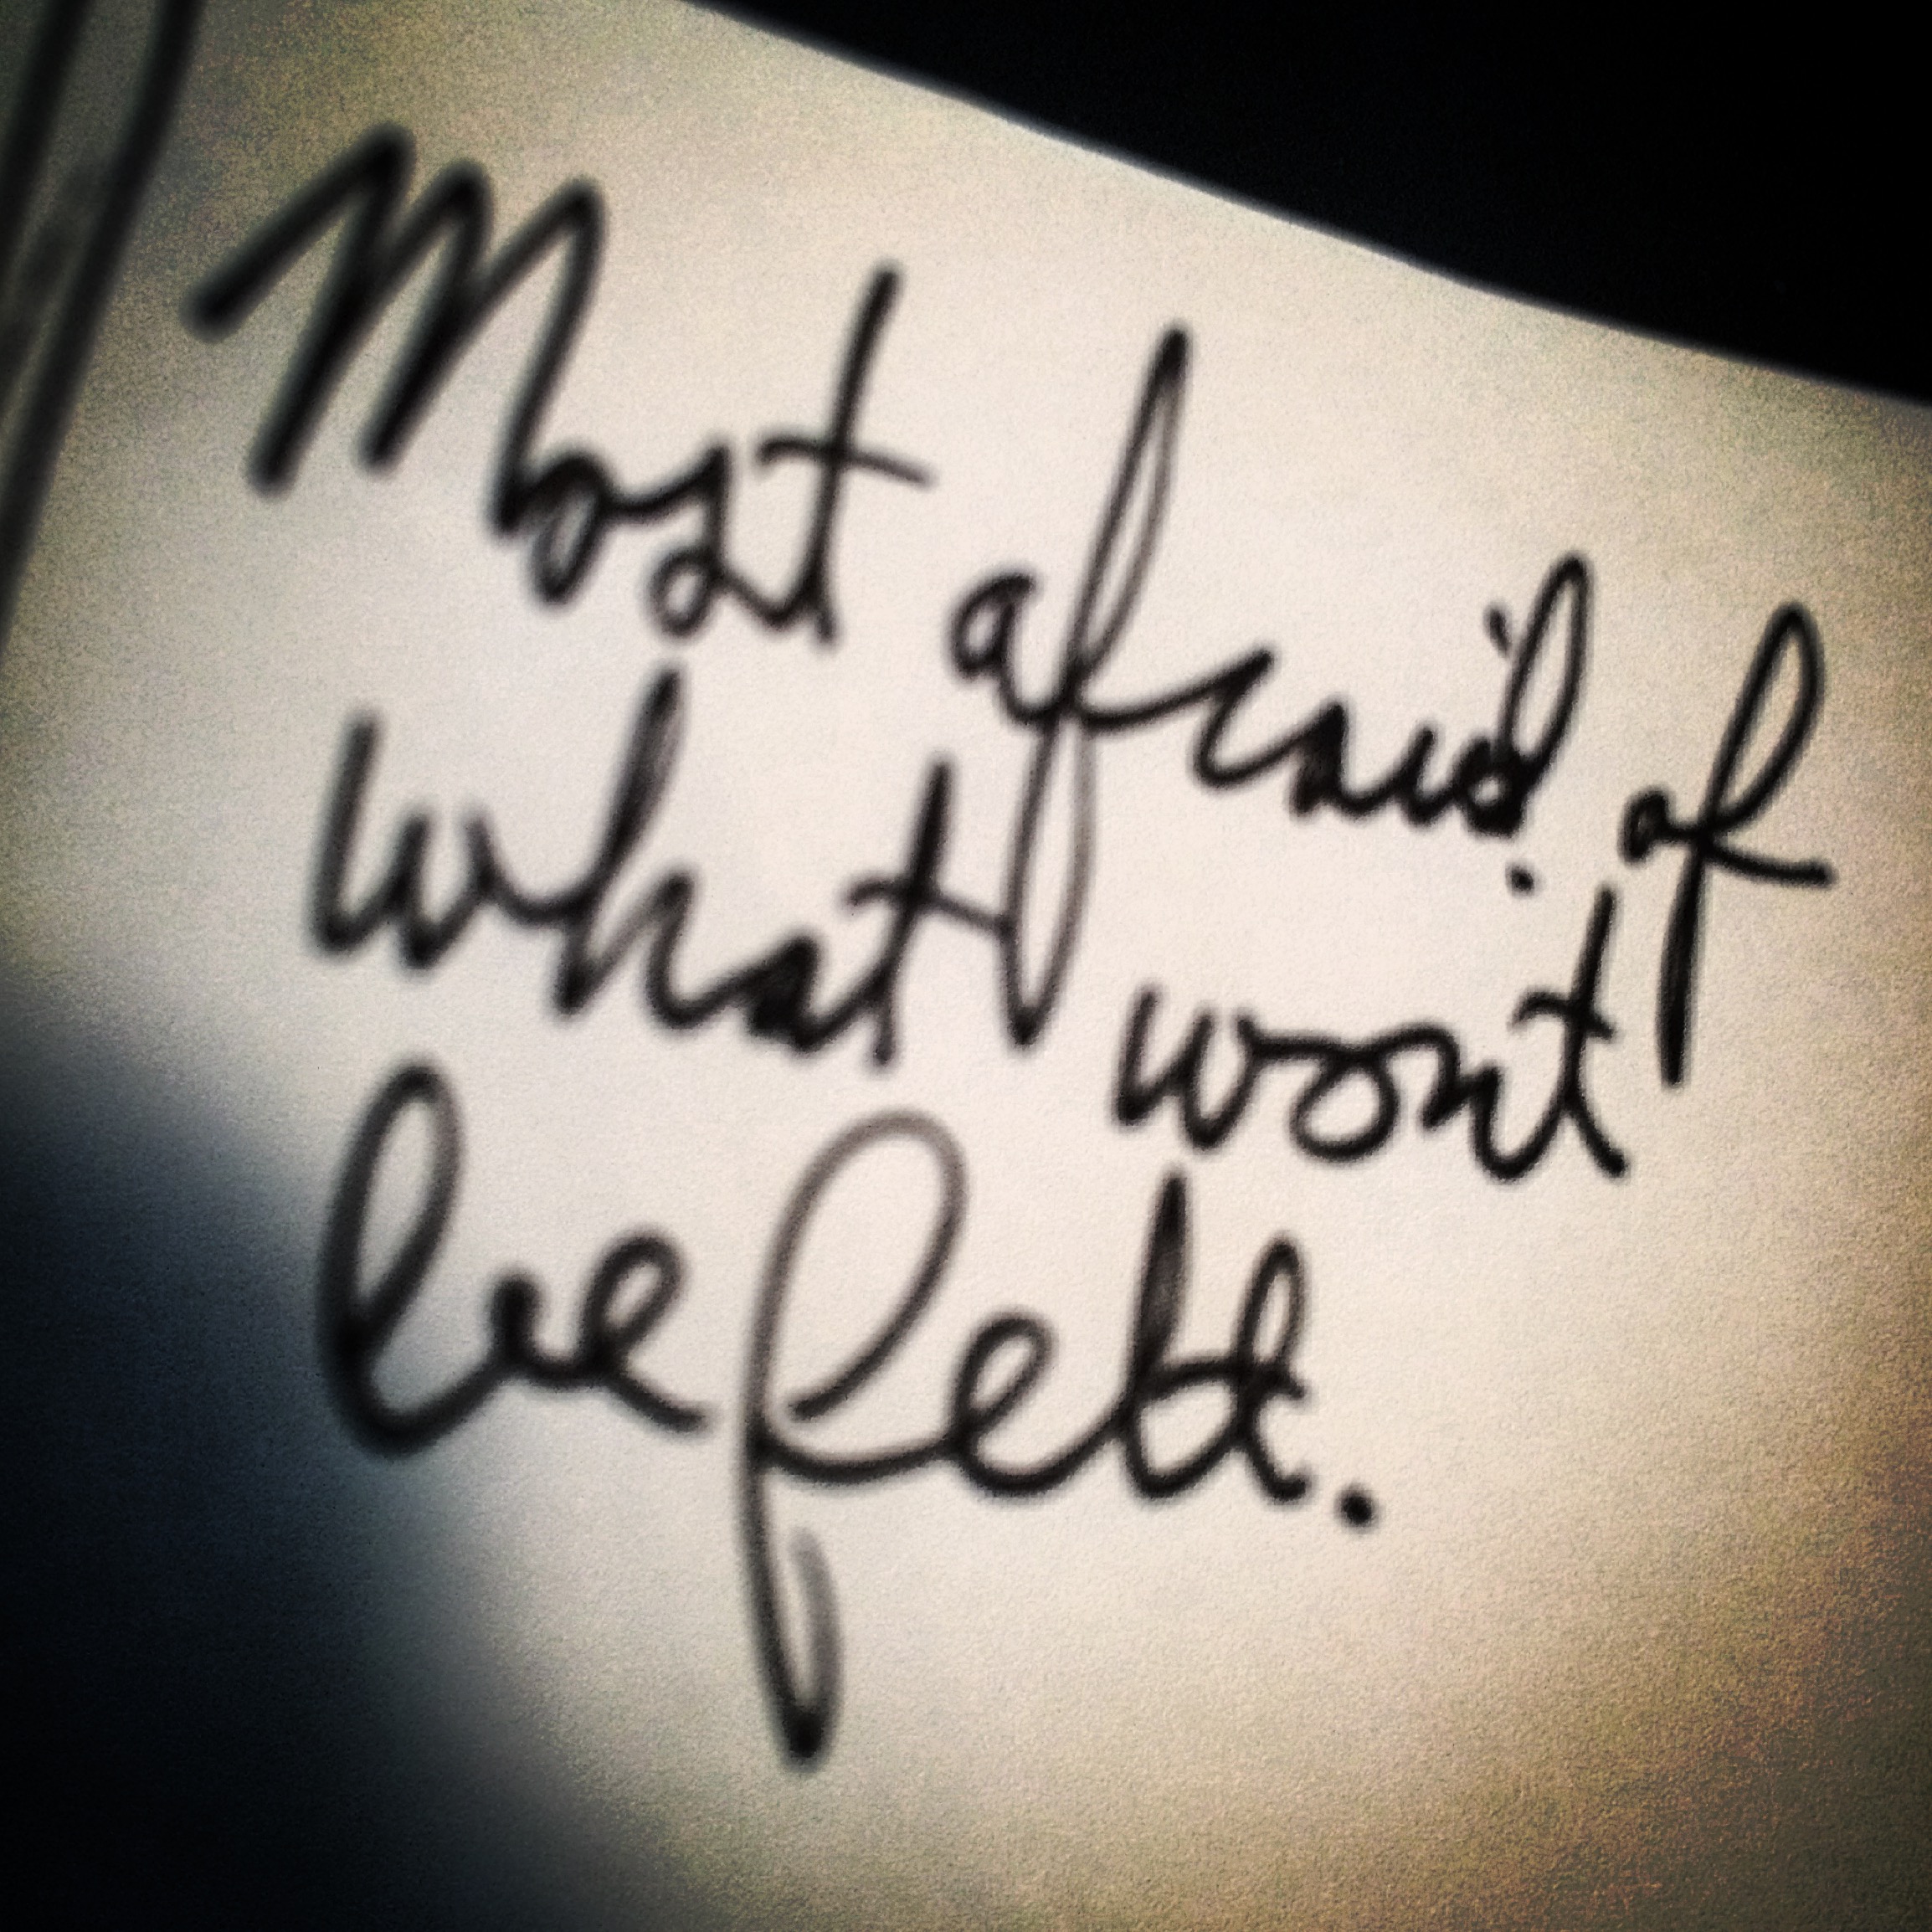 Most afraid of
what won't
be felt.